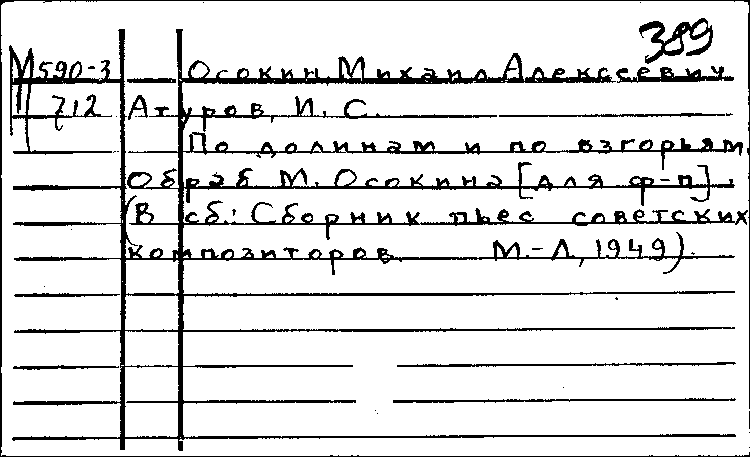 389
М590-3 Осокин, Михаил Алексеевич
712 Атуров, И. С.
По долинам и по взгорьям.
Обраб. М. Осокина [для ф-п].
(В сб.: Сборник пьес советских
композиторов. М.-Л, 1949).